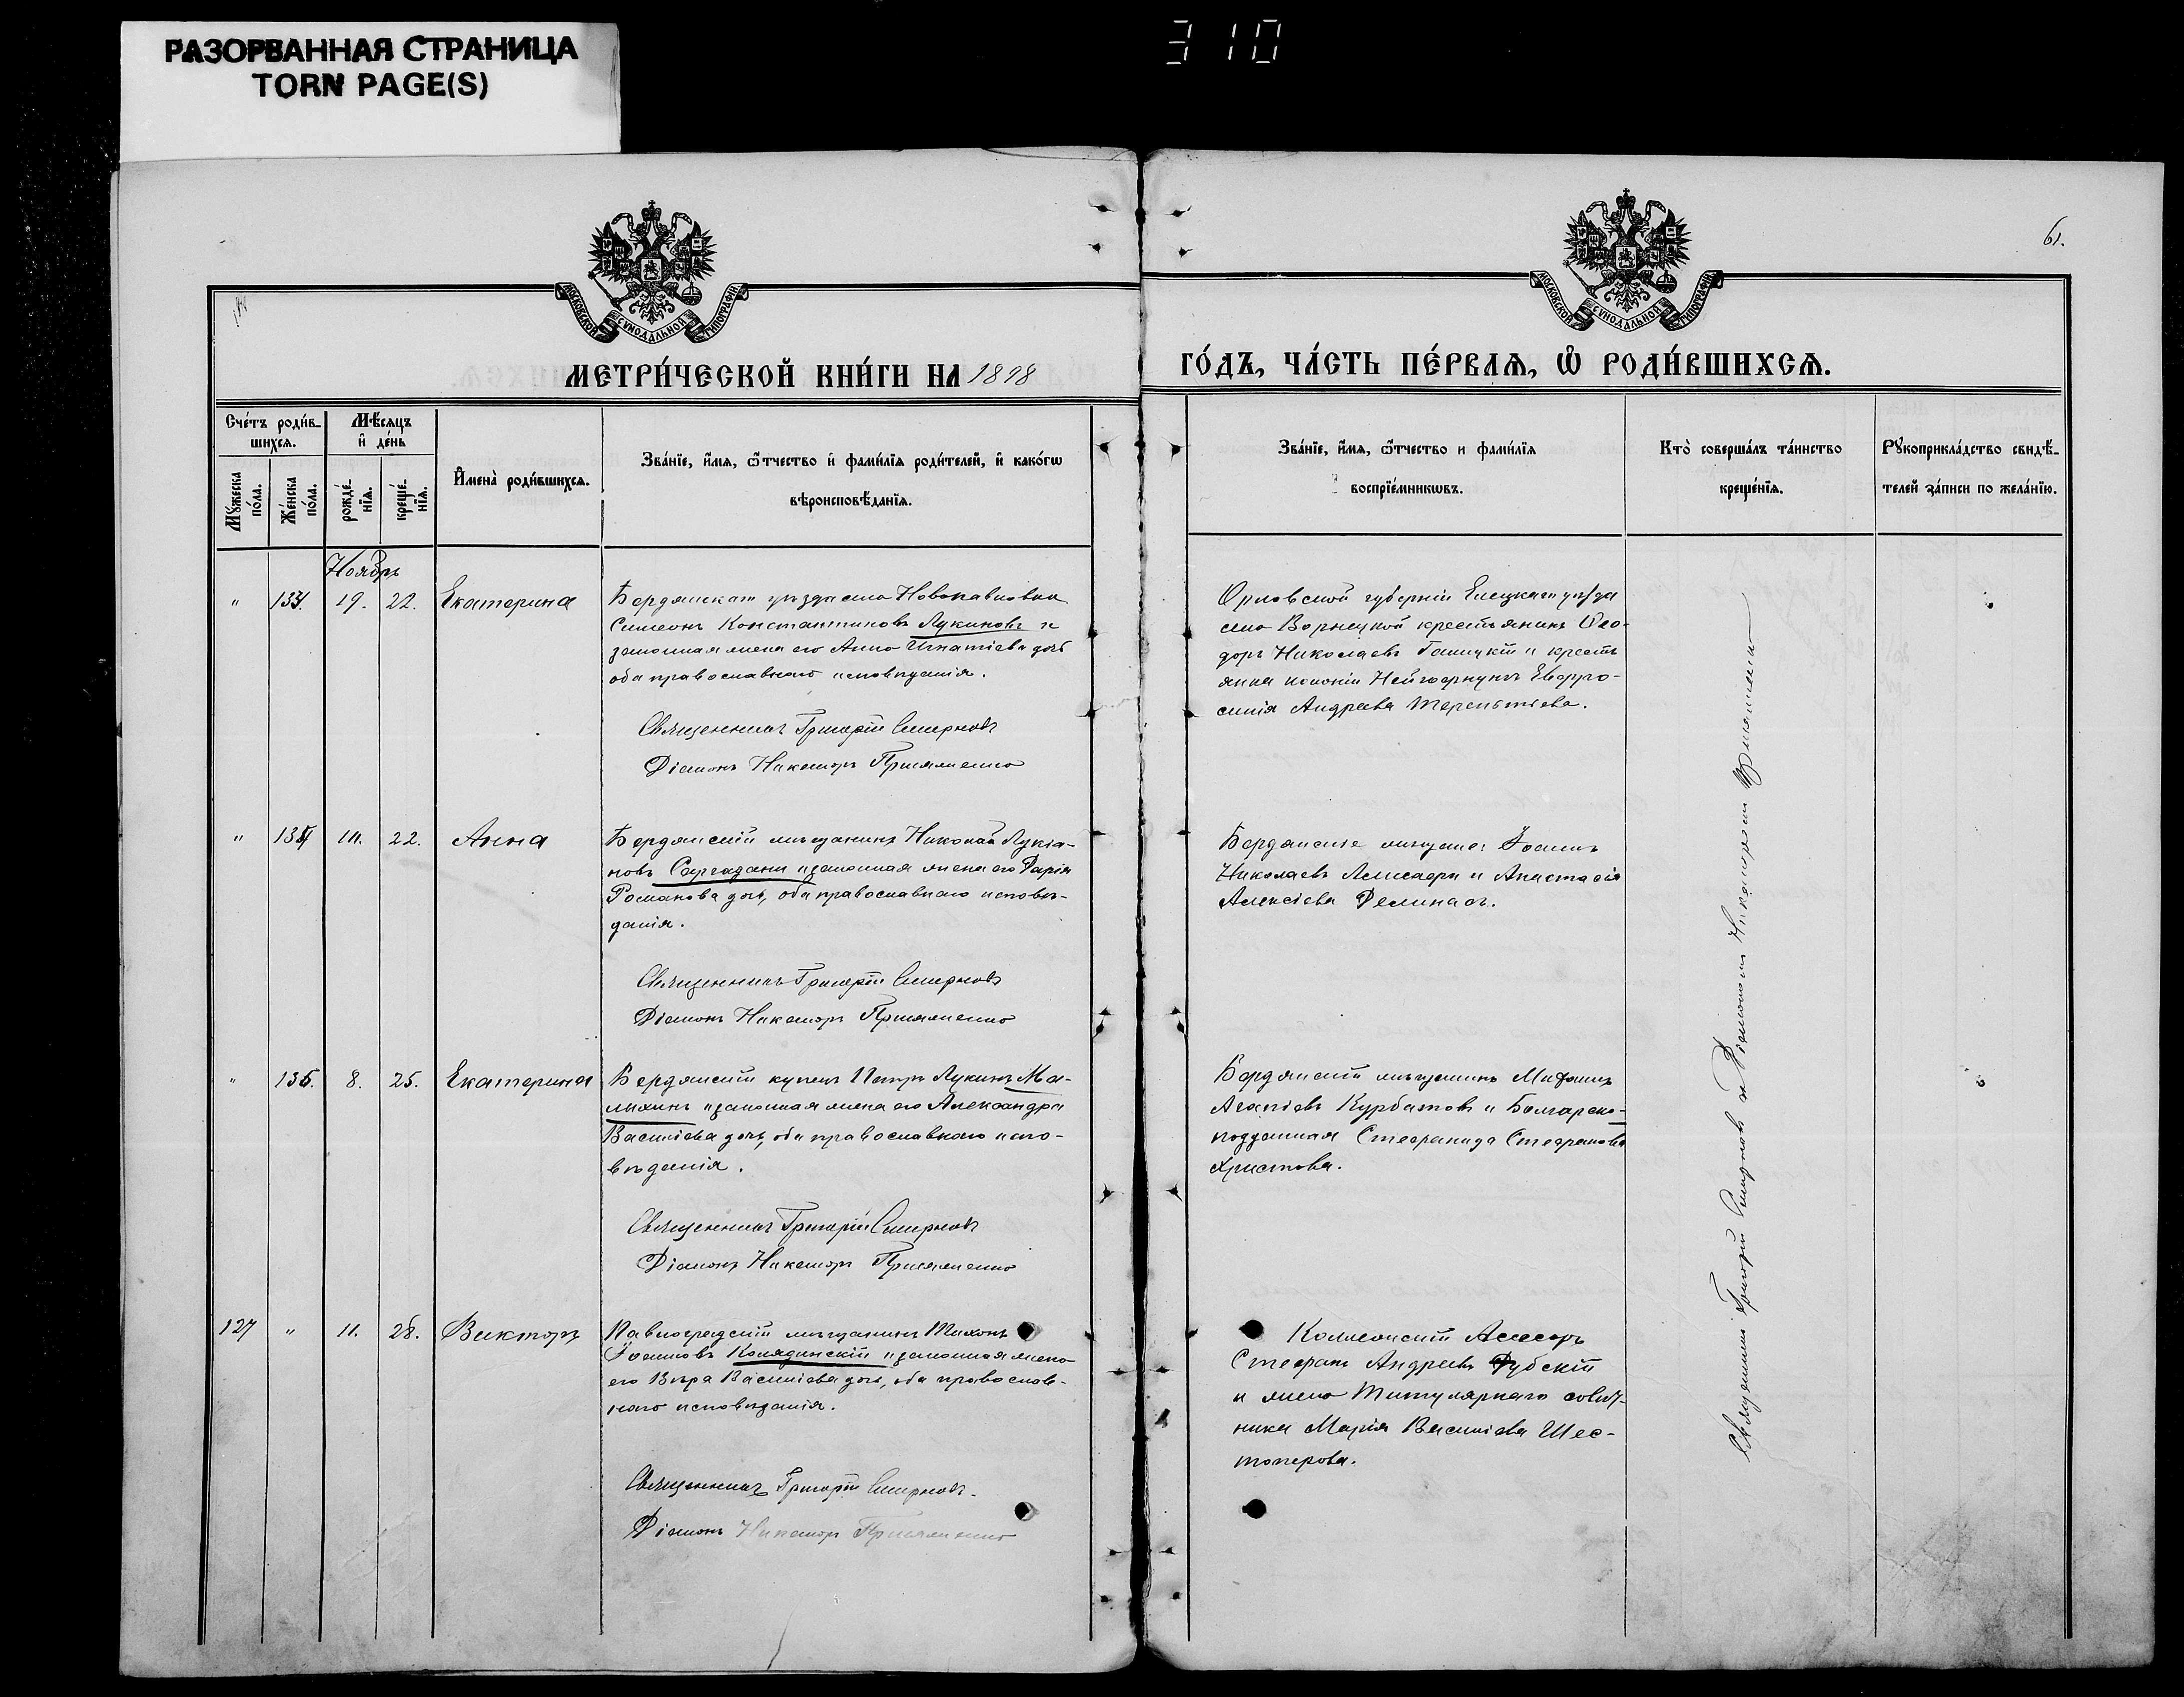 РАЗОРВАННАЯ СТРАНИЦА
TORN PAGE(S)
310
61.
МОСКОВСКОЙ СѴНОДАЛЬНОЙ ТИПОГРАФІИ
МОСКОВСКОЙ СѴНОДАЛЬНОЙ ТИПОГРАФІИ
МЕТРИ́ЧЕСКОЙ КНИ́ГИ НА 1898
ГО́ДЪ, ЧА́СТЬ ПЕ́РВАѦ, Ѽ РОДИ́ВШИХСѦ.
Сче́тъ роди́в-
шихсѧ.
Мꙋ́жеска по́ла.
Же́нска по́ла.
Мѣ́сѧцъ
и҆ де́нь
рожде́-нїѧ.
креще́-нїѧ.
И҆мена̀ роди́вшихсѧ.
Зва́нїе, и҆́мѧ, ѻ҆́тчество и҆ фами́лїѧ роди́телей, и҆ како́гѡ
вѣроисповѣ́данїѧ.
Зва́нїе, и҆́мѧ, ѻ҆́тчество и фами́лїѧ
воспрїе́мникѡвъ.
Кто̀ соверша́лъ та́инство
креще́нїѧ.
Рꙋкоприкла́дство свидѣ́-
телей за́писи по жела́нїю.
Ноябрь
" 133. 19. 22. Екатерина
Бердянскаго уѣзда села Новопавловки
Симеонъ Константиновъ Лукиновъ и
законная жена его Анна Игнатіева дочь
оба православнаго исповѣданія.
Священникъ Григорій Смирновъ
Діаконъ Никаноръ
Орловской губерніи Елецкаго уѣзда
села Ворнецкой крестьянинъ Ѳео-
доръ Николаевъ Галицкій и кресть
янка колоніи Ефро-
синія Андреева Терентьева.
" 134 22. Анна
Бердянскій мѣщанинъ Николай Лукіа-
новъ Саргадани и законная жена его Дарія
Романова дочь, оба православнаго исповѣ-
данія.
Священникъ Григорій Смирновъ
Діаконъ Никаноръ
Бердянскіе мѣщане: Іоаннъ
Николаевъ и Анастасія
Алексіева
" 135. 8. 25. Екатерина
Бердянскій купецъ Петръ Лукинъ Ма-
лыхинъ и законная жена его Александра
Василіева дочь, оба православнаго испо-
вѣданія.
Священникъ Григорій Смирновъ
Діаконъ Никаноръ
Бердянскій мѣщанинъ Митрофанъ
Агапіевъ Курбатовъ и Болгарско-
подданная Стефанида Стефанова
Христова.
127 " 11. 28. Викторъ
Павлоградскій мѣщанинъ Тихонъ
Іоанновъ Колядинскій и законная жена
его Вѣра Василіева дочь, оба православ-
наго исповѣданія.
Священникъ Григорій Смирновъ.
Діаконъ Никаноръ
Коллежскій Асесоръ
Стефанъ Андреевъ Дубскій
и жена Титулярнаго совѣт-
ника Марія Василіева Шес-
топерова.
Священникъ Григорій Смирновъ и Діакономъ Никаноромъ